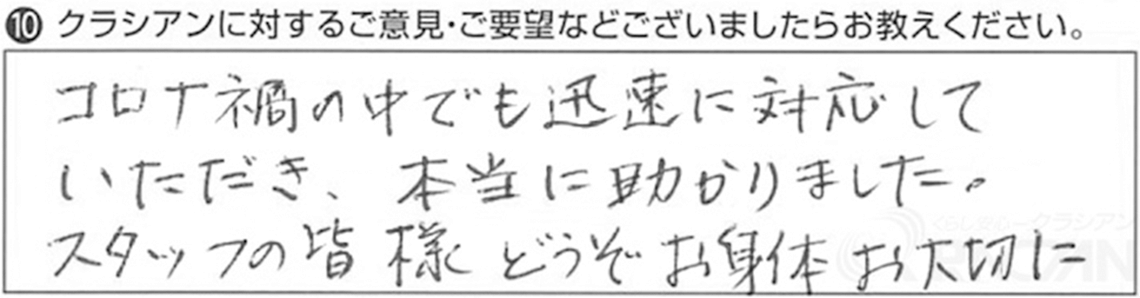 ⑩ クラシアンに対するご意見・ご要望などございましたらお教えください。
コロナ禍の中でも迅速に対応して
いただき、本当に助かりました。
スタッフの皆様どうぞお身体お大切に
くらし安心クラシアン